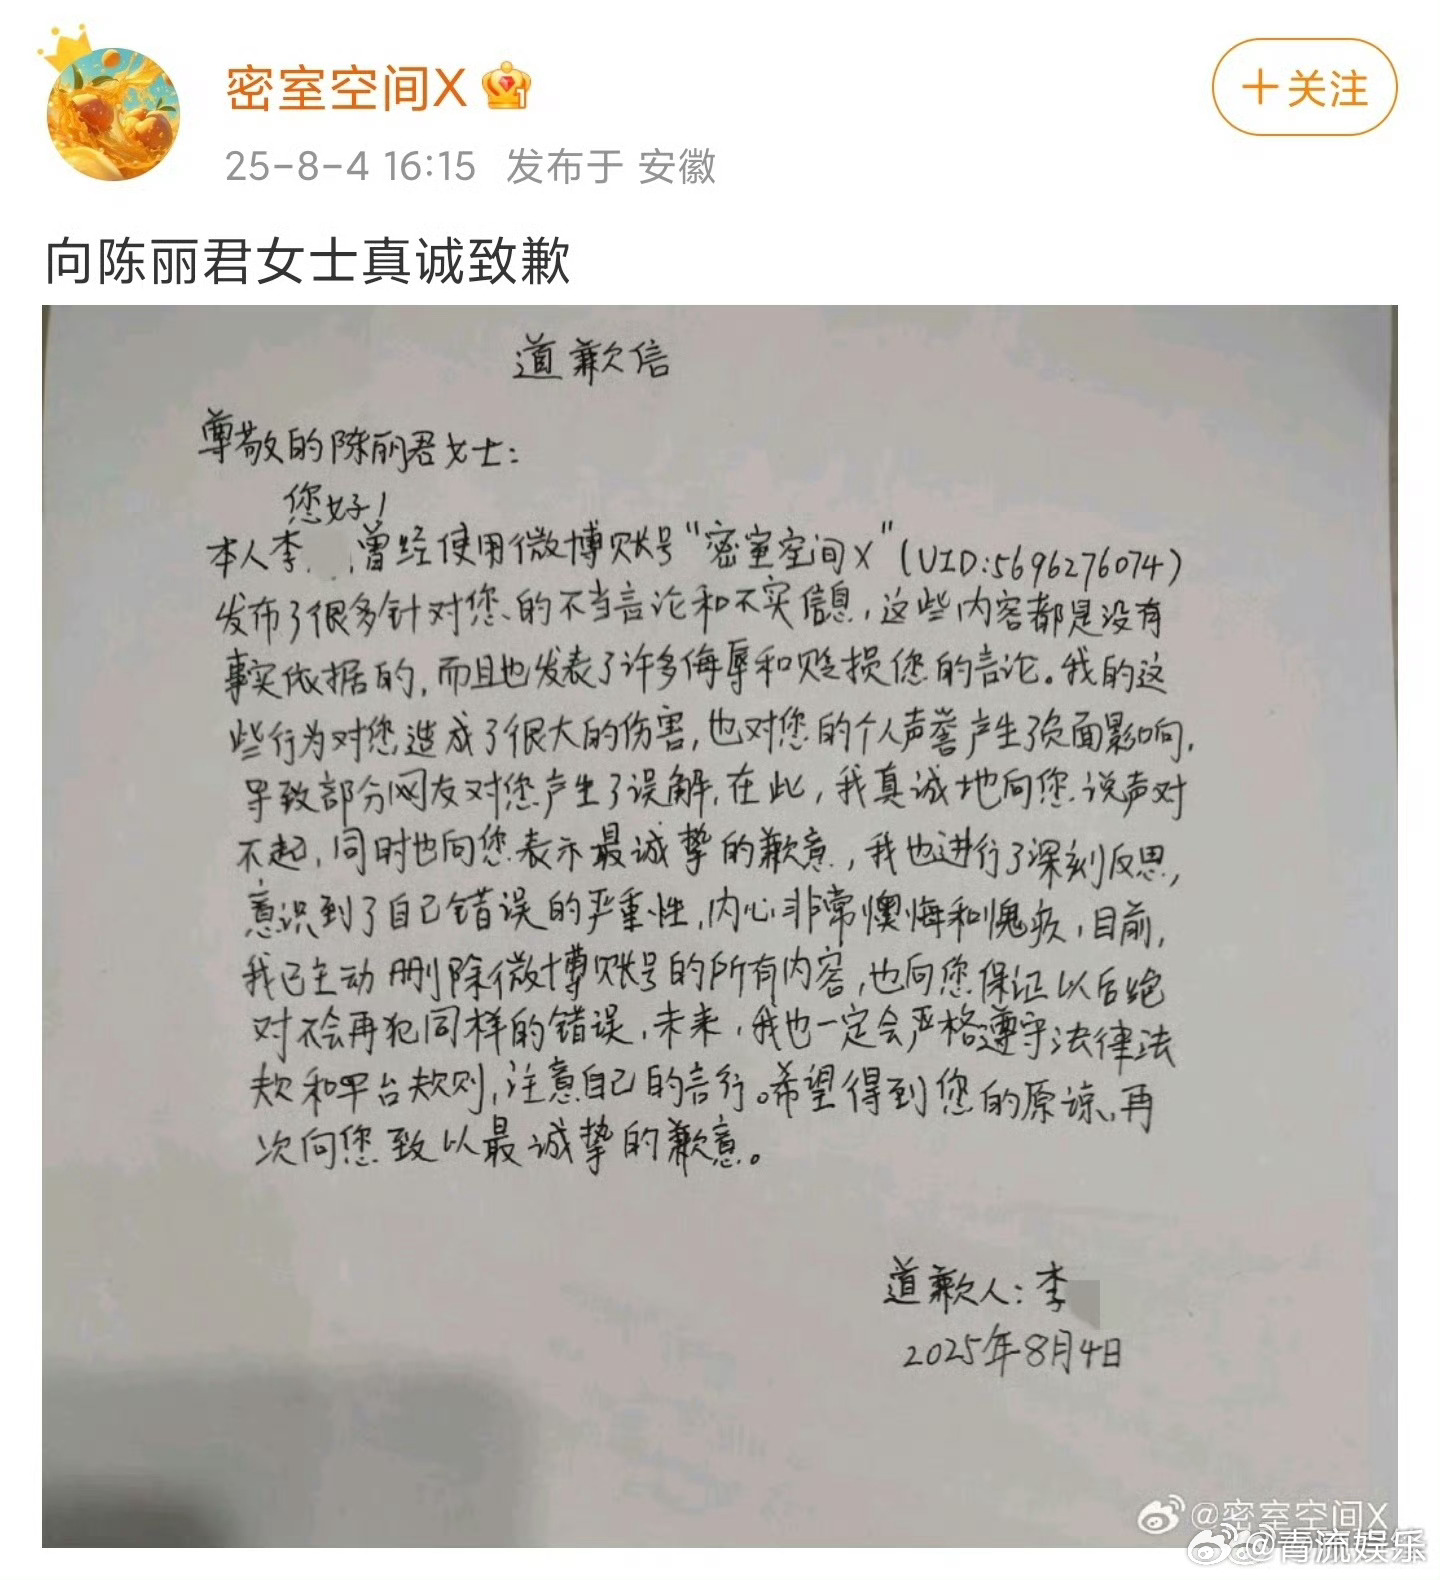 密室空间X
+关注
25-8-4 16:15 发布于 安徽
向陈丽君女士真诚致歉
道歉信
尊敬的陈丽君女士:
您好!
本人李 ,曾经使用微博账号“密室空间X”(UID:5696276074)
发布了很多针对您的不当言论和不实信息,这些内容都是没有
事实依据的,而且也发表了许多侮辱和贬损您的言论。我的这
些行为对您造成了很大的伤害,也对您的个人声誉产生了负面影响,
导致部分网友对您产生了误解,在此,我真诚地向您说声对
不起,同时也向您表示最诚挚的歉意,我也进行了深刻反思,
意识到了自己错误的严重性,内心非常懊悔和愧疚,目前,
我已主动删除微博账号的所有内容,也向您保证以后绝
对不会再犯同样的错误,未来,我也一定会严格遵守法律法
规和平台规则,注意自己的言行。希望得到您的原谅,再
次向您致以最诚挚的歉意。
道歉人:李
2025年8月4日
@密室空间X
@青流娱乐